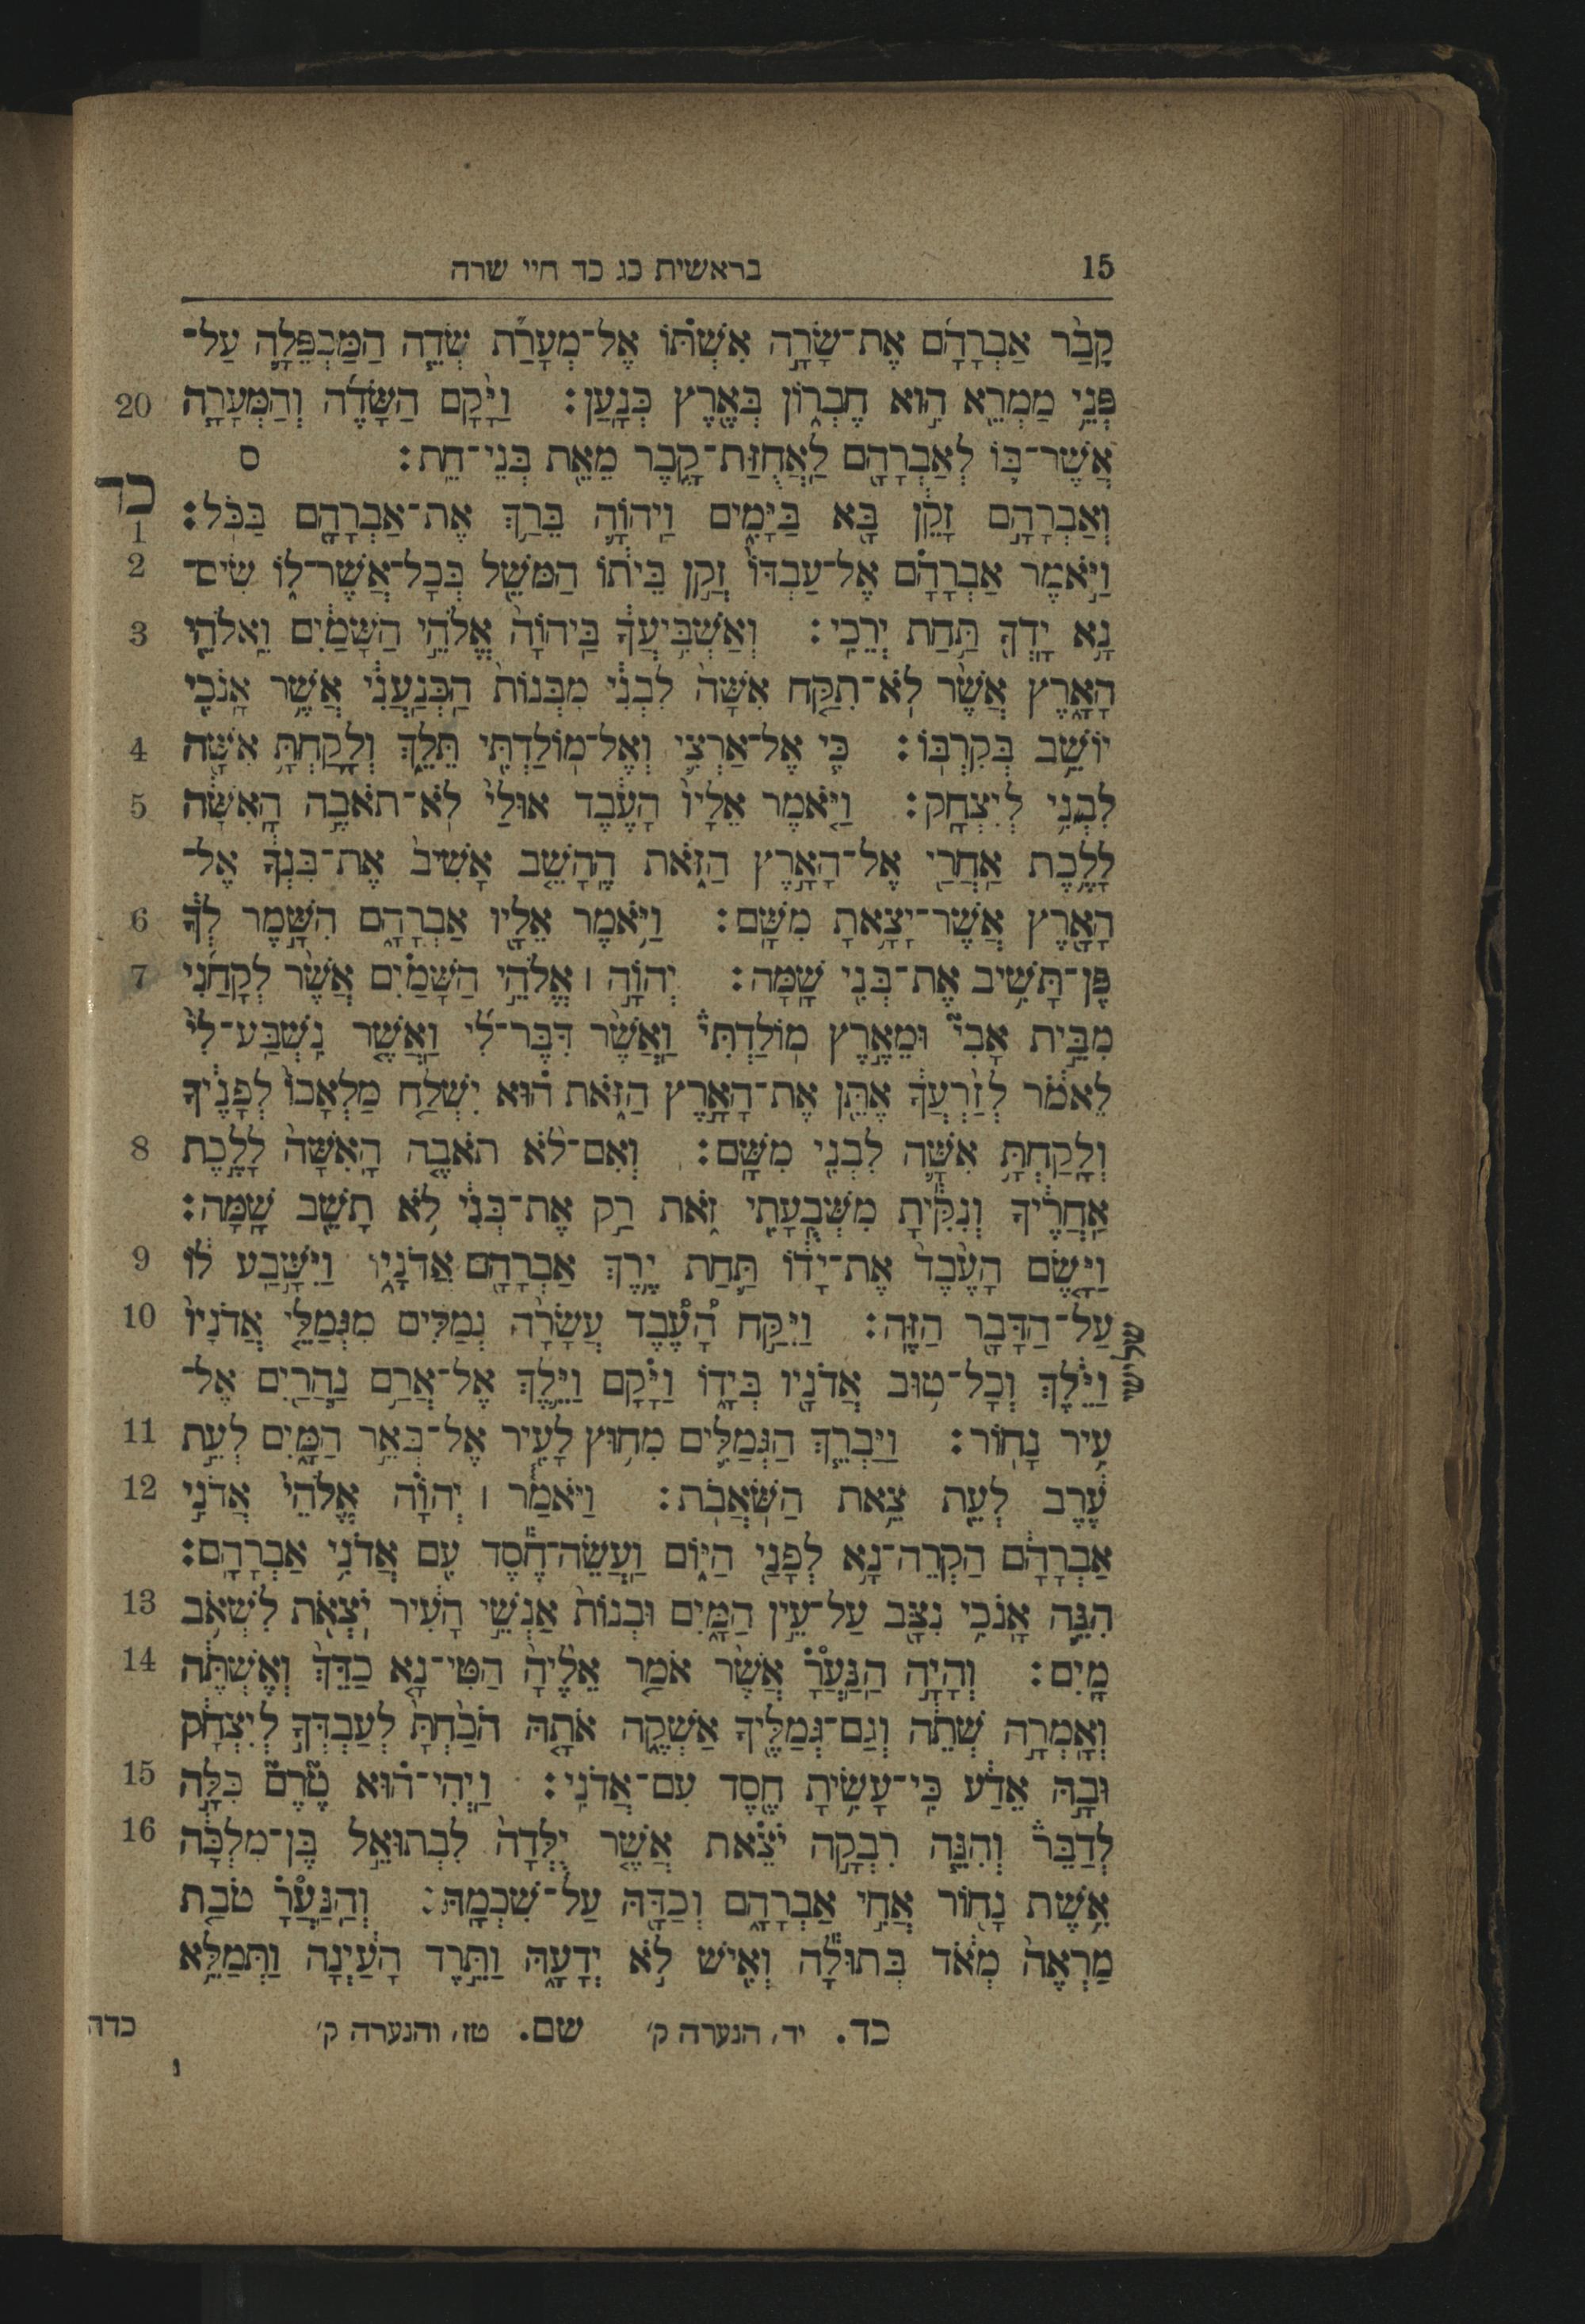 15 בראשית כג כד חיי שרה
קָבַ֨ר אַבְרָהָ֜ם אֶת־שָׂרָ֣ה אִשְׁתּ֗וֹ אֶל־מְעָרַ֞ת שְׂדֵ֧ה הַמַּכְפֵּלָ֛ה עַל־
פְּנֵ֥י מַמְרֵ֖א הִ֣וא חֶבְר֑וֹן בְּאֶ֖רֶץ כְּנָֽעַן׃ וַיָּ֨קָם הַשָּׂדֶ֜ה וְהַמְּעָרָ֧ה 20
אֲשֶׁר־בּ֛וֹ לְאַבְרָהָ֖ם לַאֲחֻזַּת־קָ֑בֶר מֵאֵ֖ת בְּנֵי־חֵֽת׃ ס
כד
וְאַבְרָהָ֣ם זָקֵ֔ן בָּ֖א בַּיָּמִ֑ים וַֽיהוָ֛ה בֵּרַ֥ךְ אֶת־אַבְרָהָ֖ם בַּכֹּֽל׃ 1
וַיֹּ֣אמֶר אַבְרָהָ֗ם אֶל־עַבְדּוֹ֙ זְקַ֣ן בֵּית֔וֹ הַמֹּשֵׁ֖ל בְּכָל־אֲשֶׁר־ל֑וֹ שִֽׂים־ 2
נָ֥א יָדְךָ֖ תַּ֥חַת יְרֵכִֽי׃ וְאַשְׁבִּ֣יעֲךָ֔ בַּֽיהוָה֙ אֱלֹהֵ֣י הַשָּׁמַ֔יִם וֵֽאלֹהֵ֖י 3
הָאָ֑רֶץ אֲשֶׁ֨ר לֹֽא־תִקַּ֤ח אִשָּׁה֙ לִבְנִ֔י מִבְּנוֹת֙ הַֽכְּנַעֲנִ֔י אֲשֶׁ֥ר אָנֹכִ֖י
יוֹשֵׁ֥ב בְּקִרְבּֽוֹ׃ כִּ֧י אֶל־אַרְצִ֛י וְאֶל־מֽוֹלַדְתִּ֖י תֵּלֵ֑ךְ וְלָקַחְתָּ֥ אִשָּׁ֖ה 4
לִבְנִ֥י לְיִצְחָֽק׃ וַיֹּ֤אמֶר אֵלָיו֙ הָעֶ֔בֶד אוּלַי֙ לֹֽא־תֹאבֶ֣ה הָֽאִשָּׁ֔ה 5
לָלֶ֥כֶת אַחֲרַ֖י אֶל־הָאָ֣רֶץ הַזֹּ֑את הֶֽהָשֵׁ֤ב אָשִׁיב֙ אֶת־בִּנְךָ֔ אֶל־
הָאָ֖רֶץ אֲשֶׁר־יָצָ֥אתָ מִשָּֽׁם׃ וַיֹּ֥אמֶר אֵלָ֖יו אַבְרָהָ֑ם הִשָּׁ֣מֶר לְךָ֔ 6
פֶּן־תָּשִׁ֥יב אֶת־בְּנִ֖י שָֽׁמָּה׃ יְהוָ֣ה ׀ אֱלֹהֵ֣י הַשָּׁמַ֗יִם אֲשֶׁ֨ר לְקָחַ֜נִי 7
מִבֵּ֣ית אָבִי֮ וּמֵאֶ֣רֶץ מֽוֹלַדְתִּי֒ וַאֲשֶׁ֨ר דִּבֶּר־לִ֜י וַאֲשֶׁ֤ר נִֽשְׁבַּֽע־לִי֙
לֵאמֹ֔ר לְזַ֨רְעֲךָ֔ אֶתֵּ֖ן אֶת־הָאָ֣רֶץ הַזֹּ֑את ה֗וּא יִשְׁלַ֤ח מַלְאָכוֹ֙ לְפָנֶ֔יךָ
וְלָקַחְתָּ֥ אִשָּׁ֛ה לִבְנִ֖י מִשָּֽׁם׃ וְאִם־לֹ֨א תֹאבֶ֤ה הָֽאִשָּׁה֙ לָלֶ֣כֶת 8
אַחֲרֶ֔יךָ וְנִקִּ֕יתָ מִשְּׁבֻעָתִ֖י זֹ֑את רַ֣ק אֶת־בְּנִ֔י לֹ֥א תָשֵׁ֖ב שָֽׁמָּה׃
וַיָּ֤שֶׂם הָעֶ֨בֶד֙ אֶת־יָד֔וֹ תַּ֛חַת יֶ֥רֶךְ אַבְרָהָ֖ם אֲדֹנָ֑יו וַיִּשָּׁ֣בַֽע ל֔וֹ 9
עַל־הַדָּבָ֖ר הַזֶּֽה׃ וַיִּקַּ֣ח הָ֠עֶ֠בֶד עֲשָׂרָ֨ה גְמַלִּ֜ים מִגְּמַלֵּ֤י אֲדֹנָיו֙ 10
שלישי
וַיֵּ֔לֶךְ וְכָל־ט֥וּב אֲדֹנָ֖יו בְּיָד֑וֹ וַיָּ֗קָם וַיֵּ֛לֶךְ אֶל־אֲרַ֥ם נַֽהֲרַ֖יִם אֶל־
עִ֥יר נָחֽוֹר׃ וַיַּבְרֵ֧ךְ הַגְּמַלִּ֛ים מִח֥וּץ לָעִ֖יר אֶל־בְּאֵ֣ר הַמָּ֑יִם לְעֵ֣ת 11
עֶ֔רֶב לְעֵ֖ת צֵ֥את הַשֹּׁאֲבֹֽת׃ וַיֹּאמַ֓ר ׀ יְהוָ֗ה אֱלֹהֵי֙ אֲדֹנִ֣י 12
אַבְרָהָ֔ם הַקְרֵה־נָ֥א לְפָנַ֖י הַיּ֑וֹם וַעֲשֵׂה־חֶ֕סֶד עִ֖ם אֲדֹנִ֥י אַבְרָהָֽם׃
הִנֵּ֛ה אָנֹכִ֥י נִצָּ֖ב עַל־עֵ֣ין הַמָּ֑יִם וּבְנוֹת֙ אַנְשֵׁ֣י הָעִ֔יר יֹצְאֹ֖ת לִשְׁאֹ֥ב 13
מָֽיִם׃ וְהָיָ֣ה הַֽנַּעֲרָ֗ אֲשֶׁ֨ר אֹמַ֤ר אֵלֶ֙יהָ֙ הַטִּי־נָ֤א כַדֵּךְ֙ וְאֶשְׁתֶּ֔ה 14
וְאָמְרָ֣ה שְׁתֵ֔ה וְגַם־גְּמַלֶּ֖יךָ אַשְׁקֶ֑ה אֹתָ֤הּ הֹכַ֙חְתָּ֙ לְעַבְדְּךָ֣ לְיִצְחָ֔ק
וּבָ֣הּ אֵדַ֔ע כִּי־עָשִׂ֥יתָ חֶ֖סֶד עִם־אֲדֹנִֽי׃ וַֽיְהִי־ה֗וּא טֶרֶם֮ כִּלָּ֣ה 15
לְדַבֵּר֒ וְהִנֵּ֧ה רִבְקָ֣ה יֹצֵ֗את אֲשֶׁ֤ר יֻלְּדָה֙ לִבְתוּאֵ֣ל בֶּן־מִלְכָּ֔ה 16
אֵ֥שֶׁת נָח֖וֹר אֲחִ֣י אַבְרָהָ֑ם וְכַדָּ֖הּ עַל־שִׁכְמָֽהּ׃ וְהַֽנַּעֲרָ֗ טֹבַ֤ת
מַרְאֶה֙ מְאֹ֔ד בְּתוּלָ֕ה וְאִ֖ישׁ לֹ֣א יְדָעָ֑הּ וַתֵּ֣רֶד הָעַ֔יְנָה וַתְּמַלֵּ֥א
כד. יד, הנערה ק׳ שם. טז, והנערה ק׳ כדה